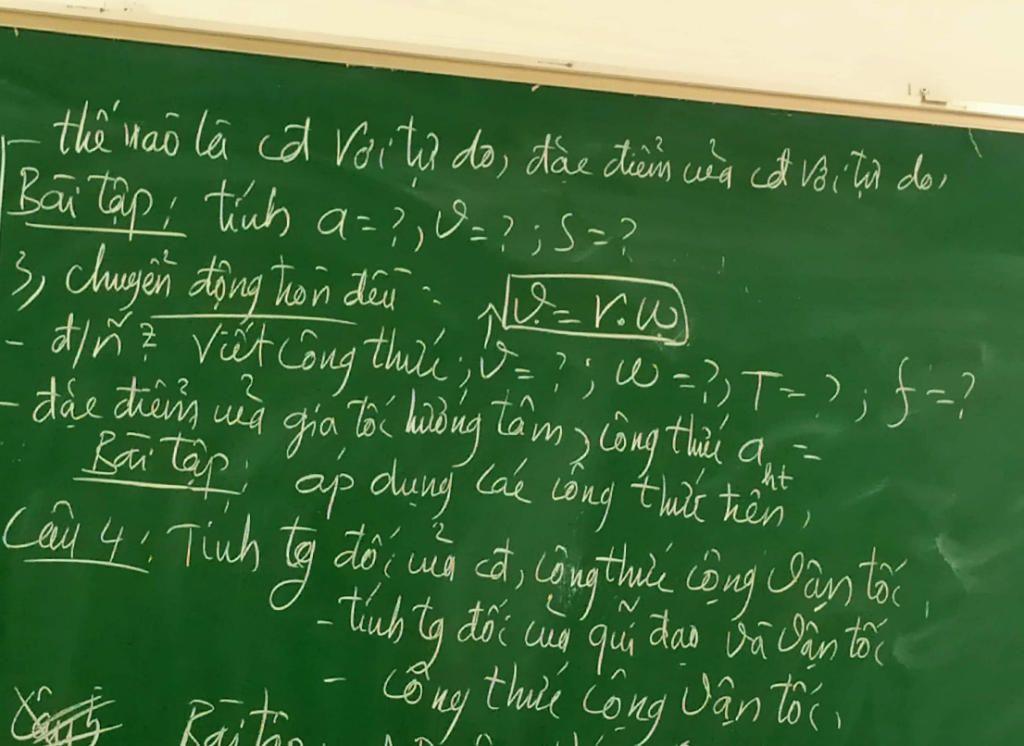 - thế nào là cđ rơi tự do, đặc điểm của cđ rơi tự do,
Bài tập: tính a=?, v=?; s=?
3, chuyển động tròn đều:
v = r.ω
- đ/n? Viết công thức; v=?; ω=?, T=?; f=?
- đặc điểm của gia tốc hướng tâm, công thức aht =
Bài tập: áp dụng các công thức trên,
Câu 4: Tính tg đối của cđ, công thức cộng vận tốc,
- tính tg đối của quĩ đạo và vận tốc
- công thức cộng vận tốc,
Câu 5 Bài tập: